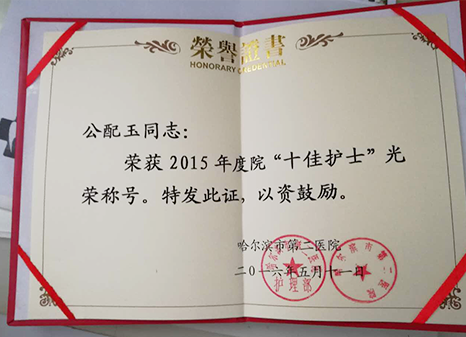 榮譽證書
HONORARY CREDENTIAL
公配玉同志：
荣获2015年度院“十佳护士”光
荣称号。特发此证，以资鼓励。
哈尔滨市第二医院
二〇一六年五月十一日
哈尔滨市第二医院
护理部
哈尔滨市第二医院